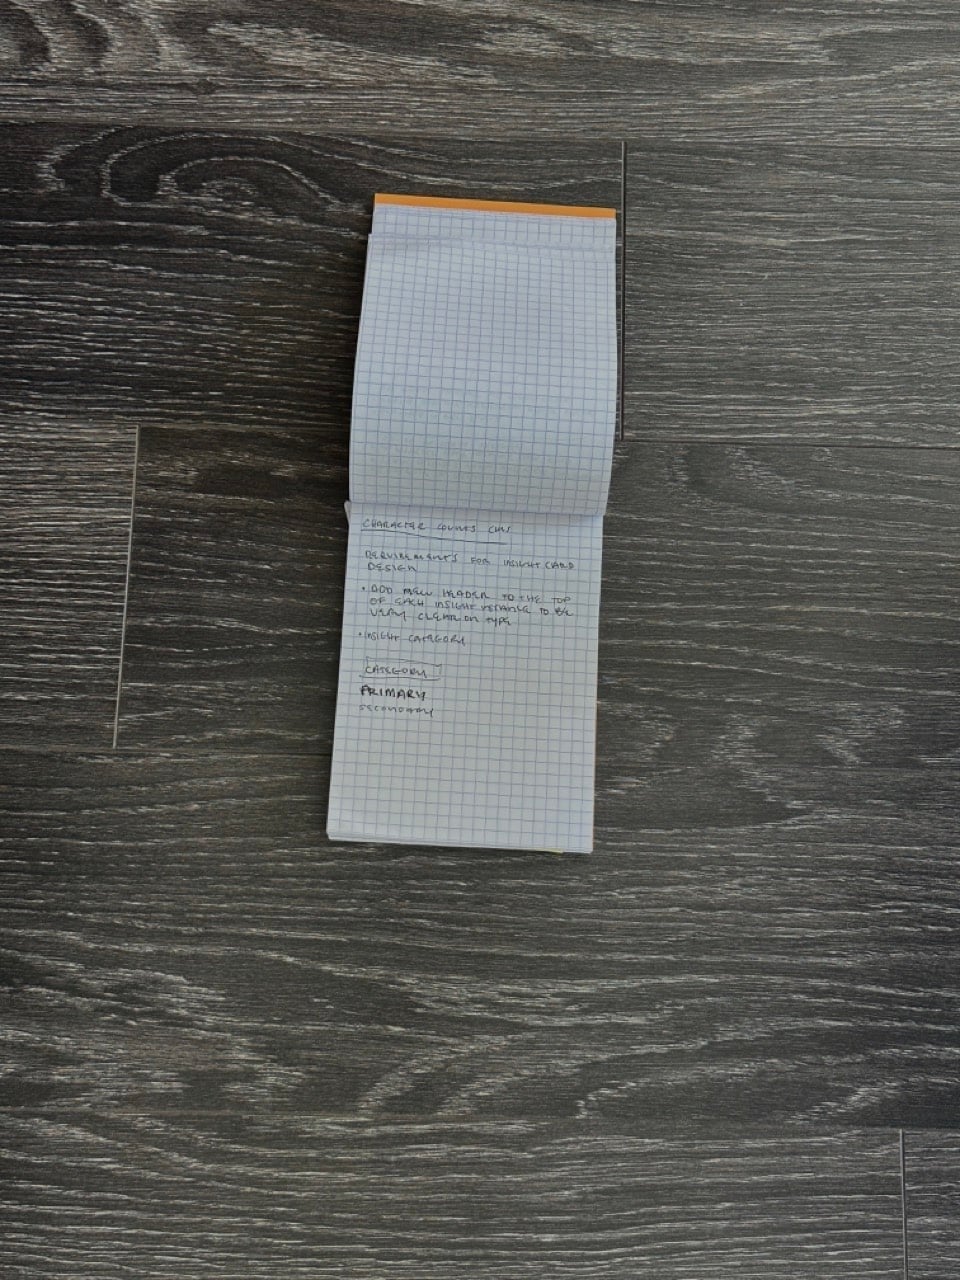 CHARACTER COUNTS CMS
REQUIREMENTS FOR INSIGHT CARD
DESIGN
• ADD NEW HEADER TO THE TOP
OF EACH INSIGHT INSTANCE TO BE
VERY CLEAR ON TYPE
• INSIGHT CATEGORY
CATEGORY
PRIMARY
SECONDARY